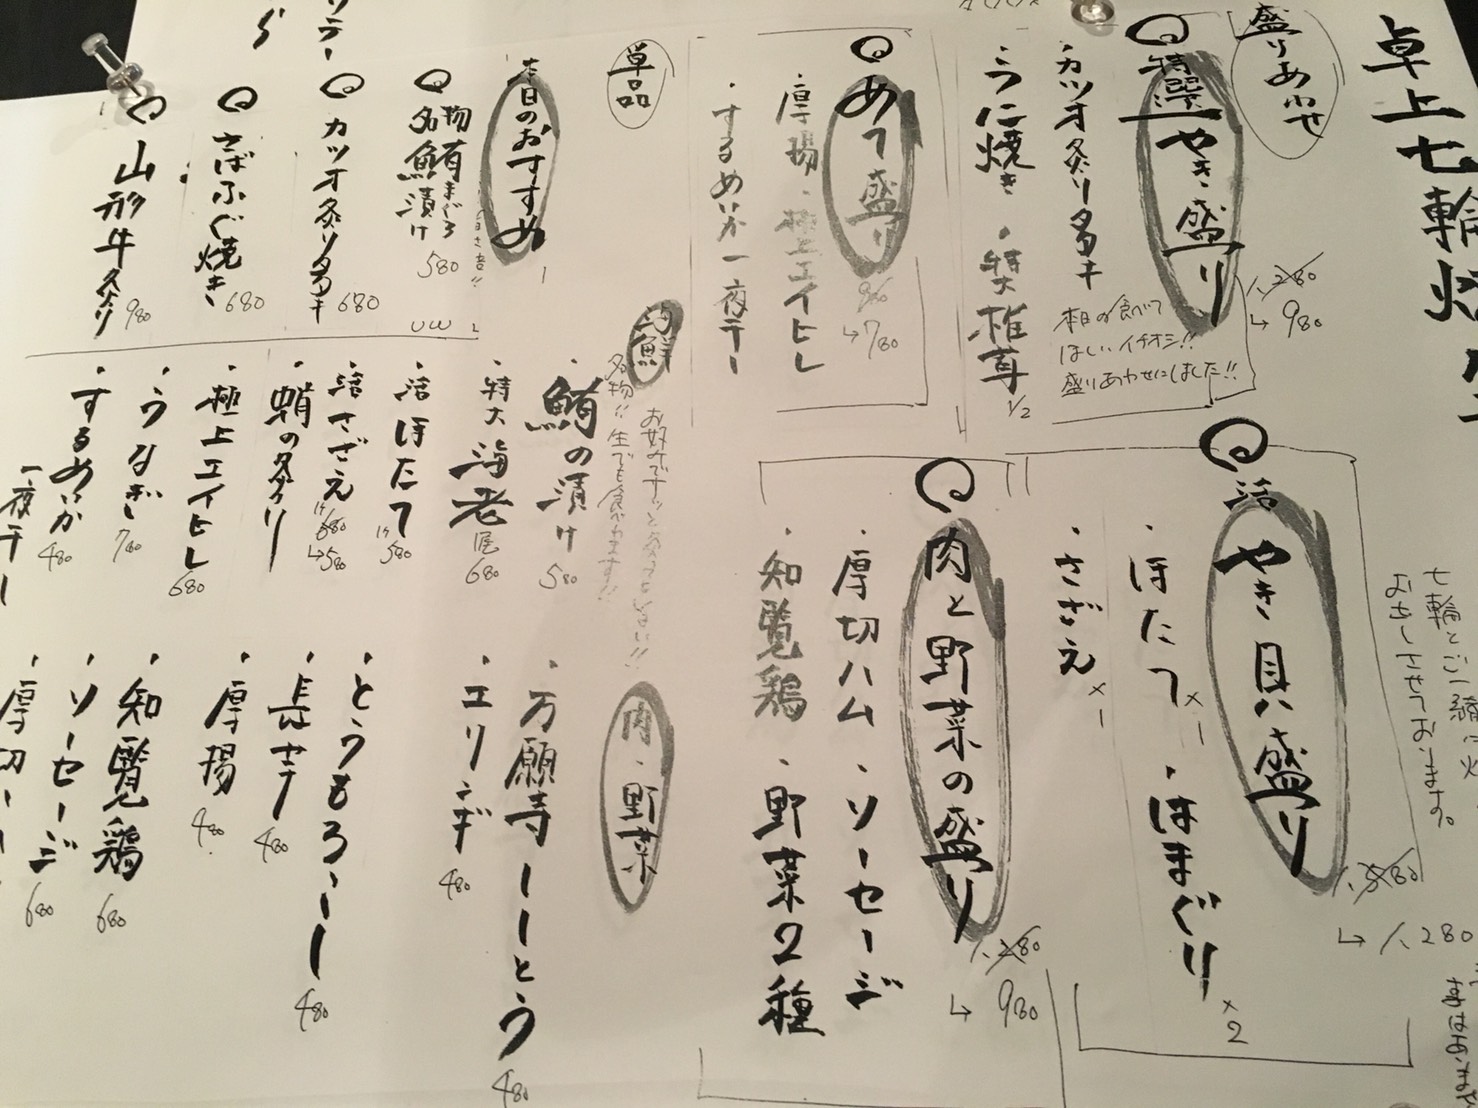 卓上七輪焼
七輪とご一緒に
お出しさせております。
盛りあわせ
特選やき盛り
1,280
→980
カツオ炙りタタキ
うに焼き・特大椎茸
1/2
本日の食べて
ほしいイチオシ!!
盛りあわせにしました!!
あて盛り
980
→780
厚揚・極上エイヒレ
・するめいか一夜干し
活やき貝盛り
1,580
→1,280
・ほたて×1
・はまぐり×2
・さざえ×1
肉と野菜の盛り
1,280
→980
・厚切ハム・ソーセージ
・知覧鶏・野菜2種
単品
本日のおすすめ
名物鮪まぐろ漬け
580
カツオ炙りタタキ
680
さばふぐ焼き
680
山形牛炙り
980
海鮮
名物!!生でも食べれます!!
・鮪の漬け
580
・特大海老
1尾
680
・活ほたて
1ケ
580
・活さざえ
1ケ
680
→580
・蛸の炙り
・極上エイヒレ
680
・うなぎ
780
・するめいか
一夜干し
480
肉・野菜
・万願寺とうがらし
480
・エリンギ
480
・とうもろこし
480
・長芋
480
・厚揚
480
・知覧鶏
680
・ソーセージ
680
・厚切